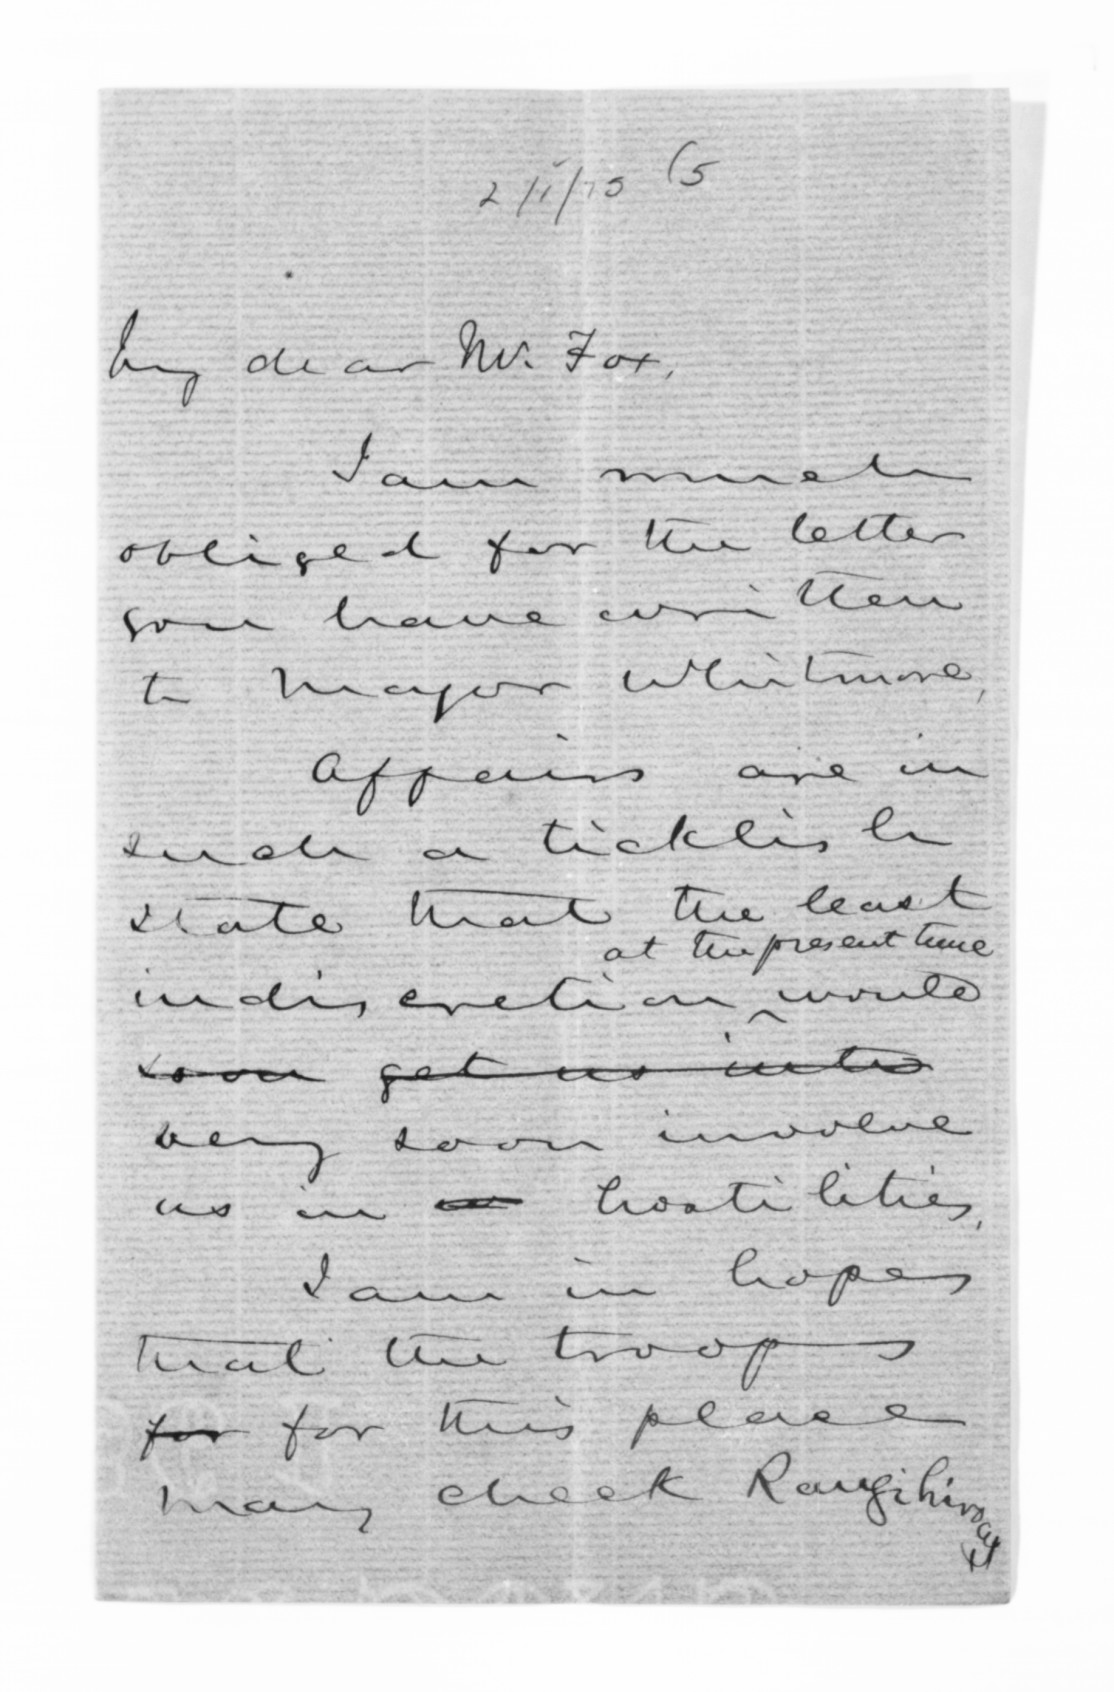 (5
My dear Mr. Fox,
I am much
obliged for the letter
you have written
to Major Whitmore,
Affairs are in
such a ticklish
state that the least
at the present time
indiscretion ^ would
soon get us into
very soon involve
us in hostilities,
I am in hopes
that the troops
for for this place
may check